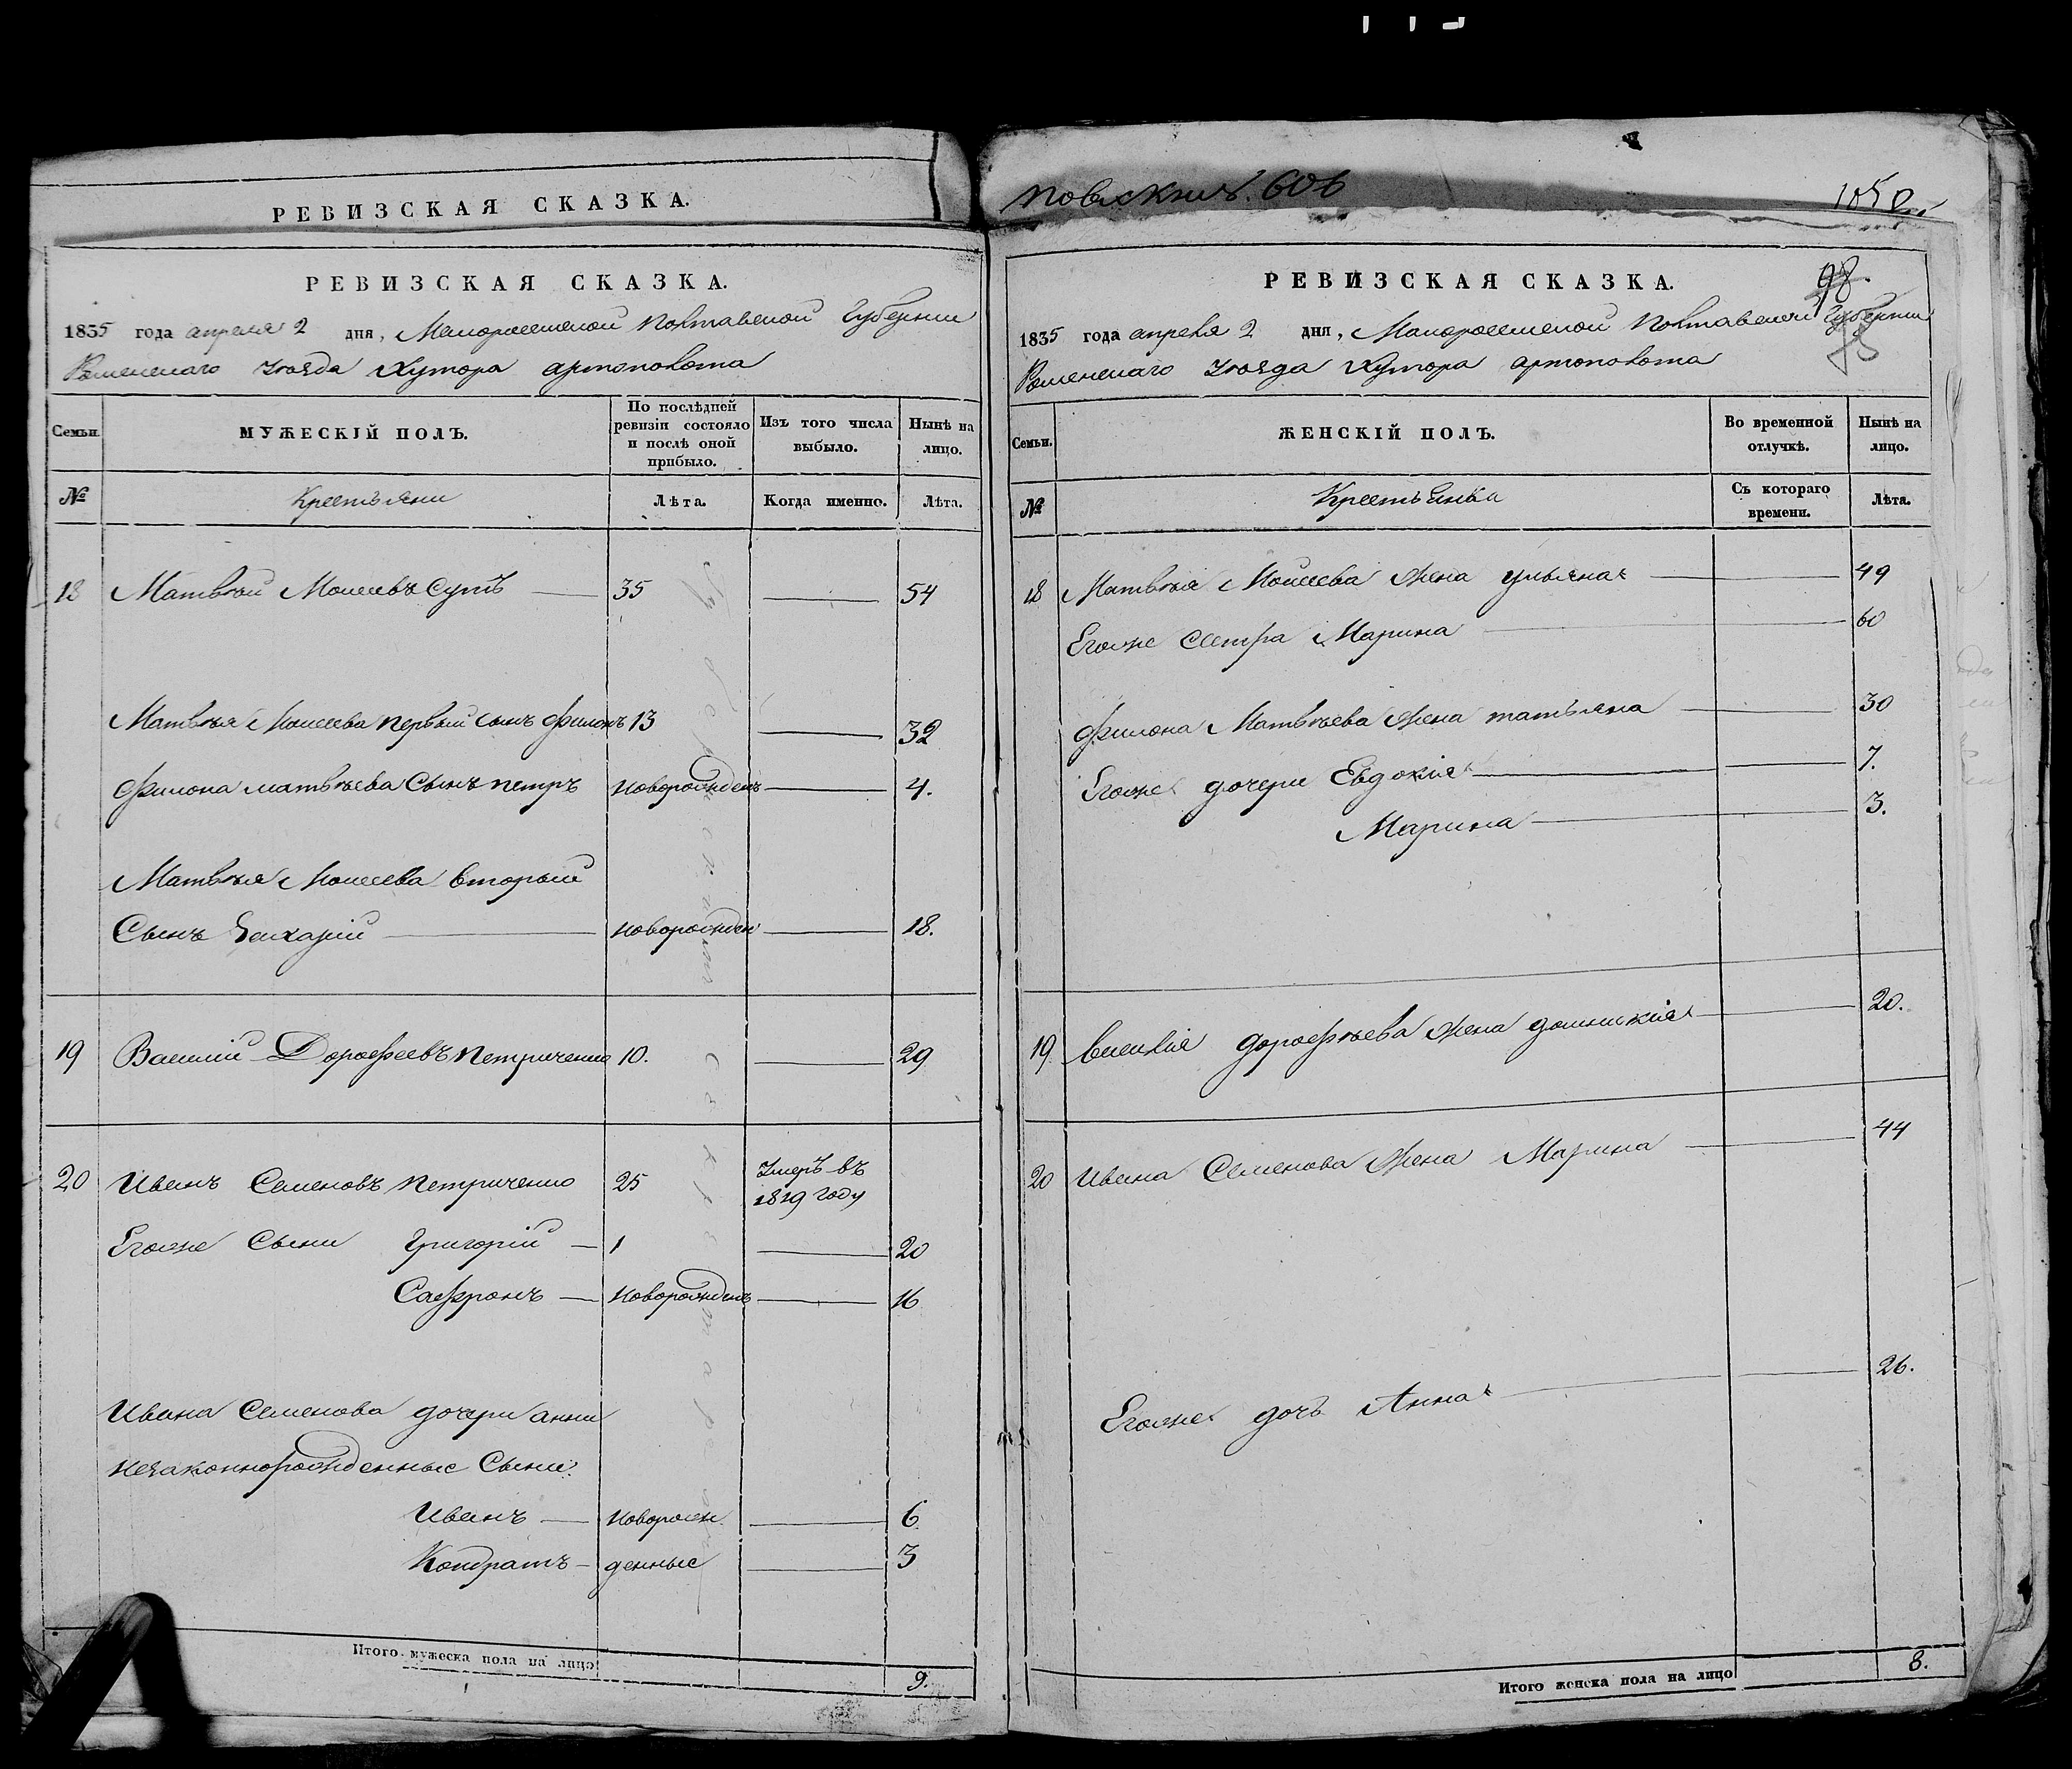 РЕВИЗСКАЯ СКАЗКА.
РЕВИЗСКАЯ СКАЗКА.
1835 года апреля 2 дня, Малоросийской Полтавской Губернии
Роменского уезда Хутора артополота
Семьи.
МУЖЕСКІЙ ПОЛЪ.
По послѣдней ревизіи состояло и послѣ оной прибыло.
Изъ того числа выбыло.
Нынѣ на лицо.
№
Крестьяни
Лѣта.
Когда именно.
Лѣта.
18 Матвѣй Моисеевъ Супъ 35 54
Матвѣя Моисеева первый сынъ Филонъ 13 32
Филона матвѣева Сынъ петръ новорожденъ 4.
Матвѣя Моисеева вторый
Сынъ Захарій новорожден 18.
19 Василій Дорофеевъ Петриченко 10. 29
20 Иванъ Семеновъ Петриченко 25 Умеръ въ
1819 году
Егоже Сыни Григорій 1 20
Сафронъ новорожденъ 16
Ивана Семенова дочери анни
незаконнорожденные Сыни:
Иванъ новорож 6
Кондратъ денные 3
Итого мужеска пола на лицо 9.
606
1850
98
75
РЕВИЗСКАЯ СКАЗКА.
1835 года апреля 2 дня, Малоросийской Полтавской Губернии
Роменского уезда Хутора артополота
Семьи.
ЖЕНСКІЙ ПОЛЪ.
Во временной отлучкѣ.
Нынѣ на лицо.
№
Крестьянки
Съ котораго времени.
Лѣта.
18 Матвѣя Моисеева Жена ульяна 49
Егоже Сестра Марина 60
Филона Матвѣева Жена татьяна 30
Егоже дочери Евдокія 7.
Марина 3.
19 Василія дорофѣева Жена домникія 20.
20 Ивана Семенова Жена Марина 44
Егоже дочь Анна 26.
Итого женска пола на лицо 8.